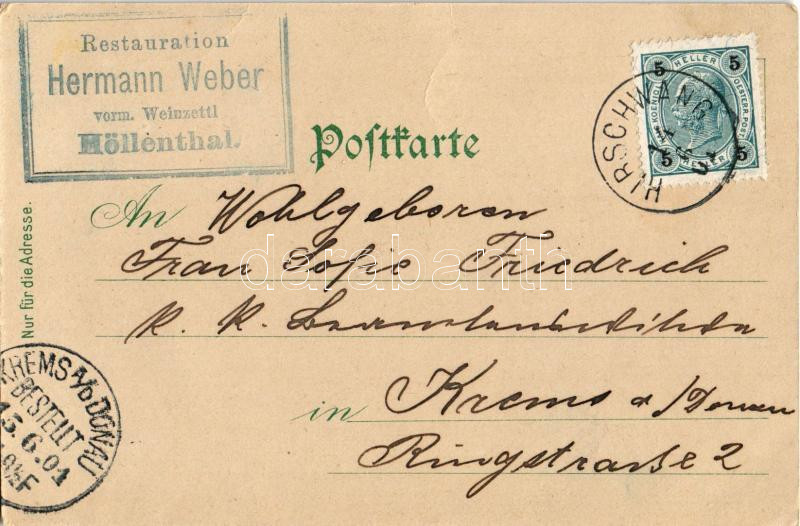 Restauration
Hermann Weber
vorm. Weinzettl
Höllenthal.
Postkarte
5 HELLER 5
KAIS. KOENIGL. OESTERR. POST
5 HELLER 5
HIRSCHWANG
Nur für die Adresse.
An Wohlgeboren
Frau Sofie Friedrich
k. k.
in Krems a/Donau
Ringstrasse 2
KREMS A/D DONAU
BESTELLT
15.6.01
darabanth